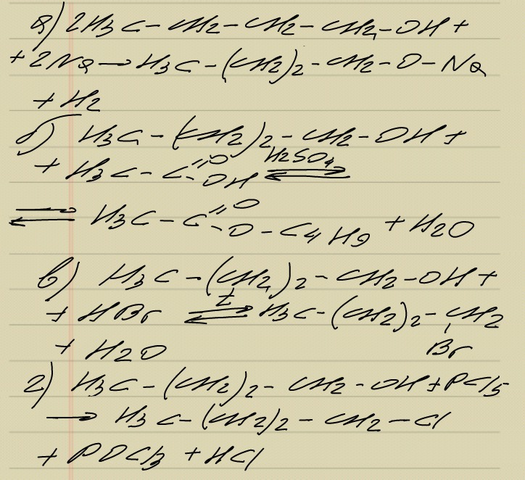 а) 2H3C-CH2-CH2-CH2-OH +
+ 2Na → H3C-(CH2)2-CH2-O-Na
+ H2
б) H3C-(CH2)2-CH2-OH +
+ H3C-C(=O)-OH ⇌ H2SO4
⇌ H3C-C(=O)-O-C4H9 + H2O
в) H3C-(CH2)2-CH2-OH +
+ HBr ⇌ t H3C-(CH2)2-CH2
+ H2O Br
г) H3C-(CH2)2-CH2-OH + PCl5
→ H3C-(CH2)2-CH2-Cl
+ POCl3 + HCl